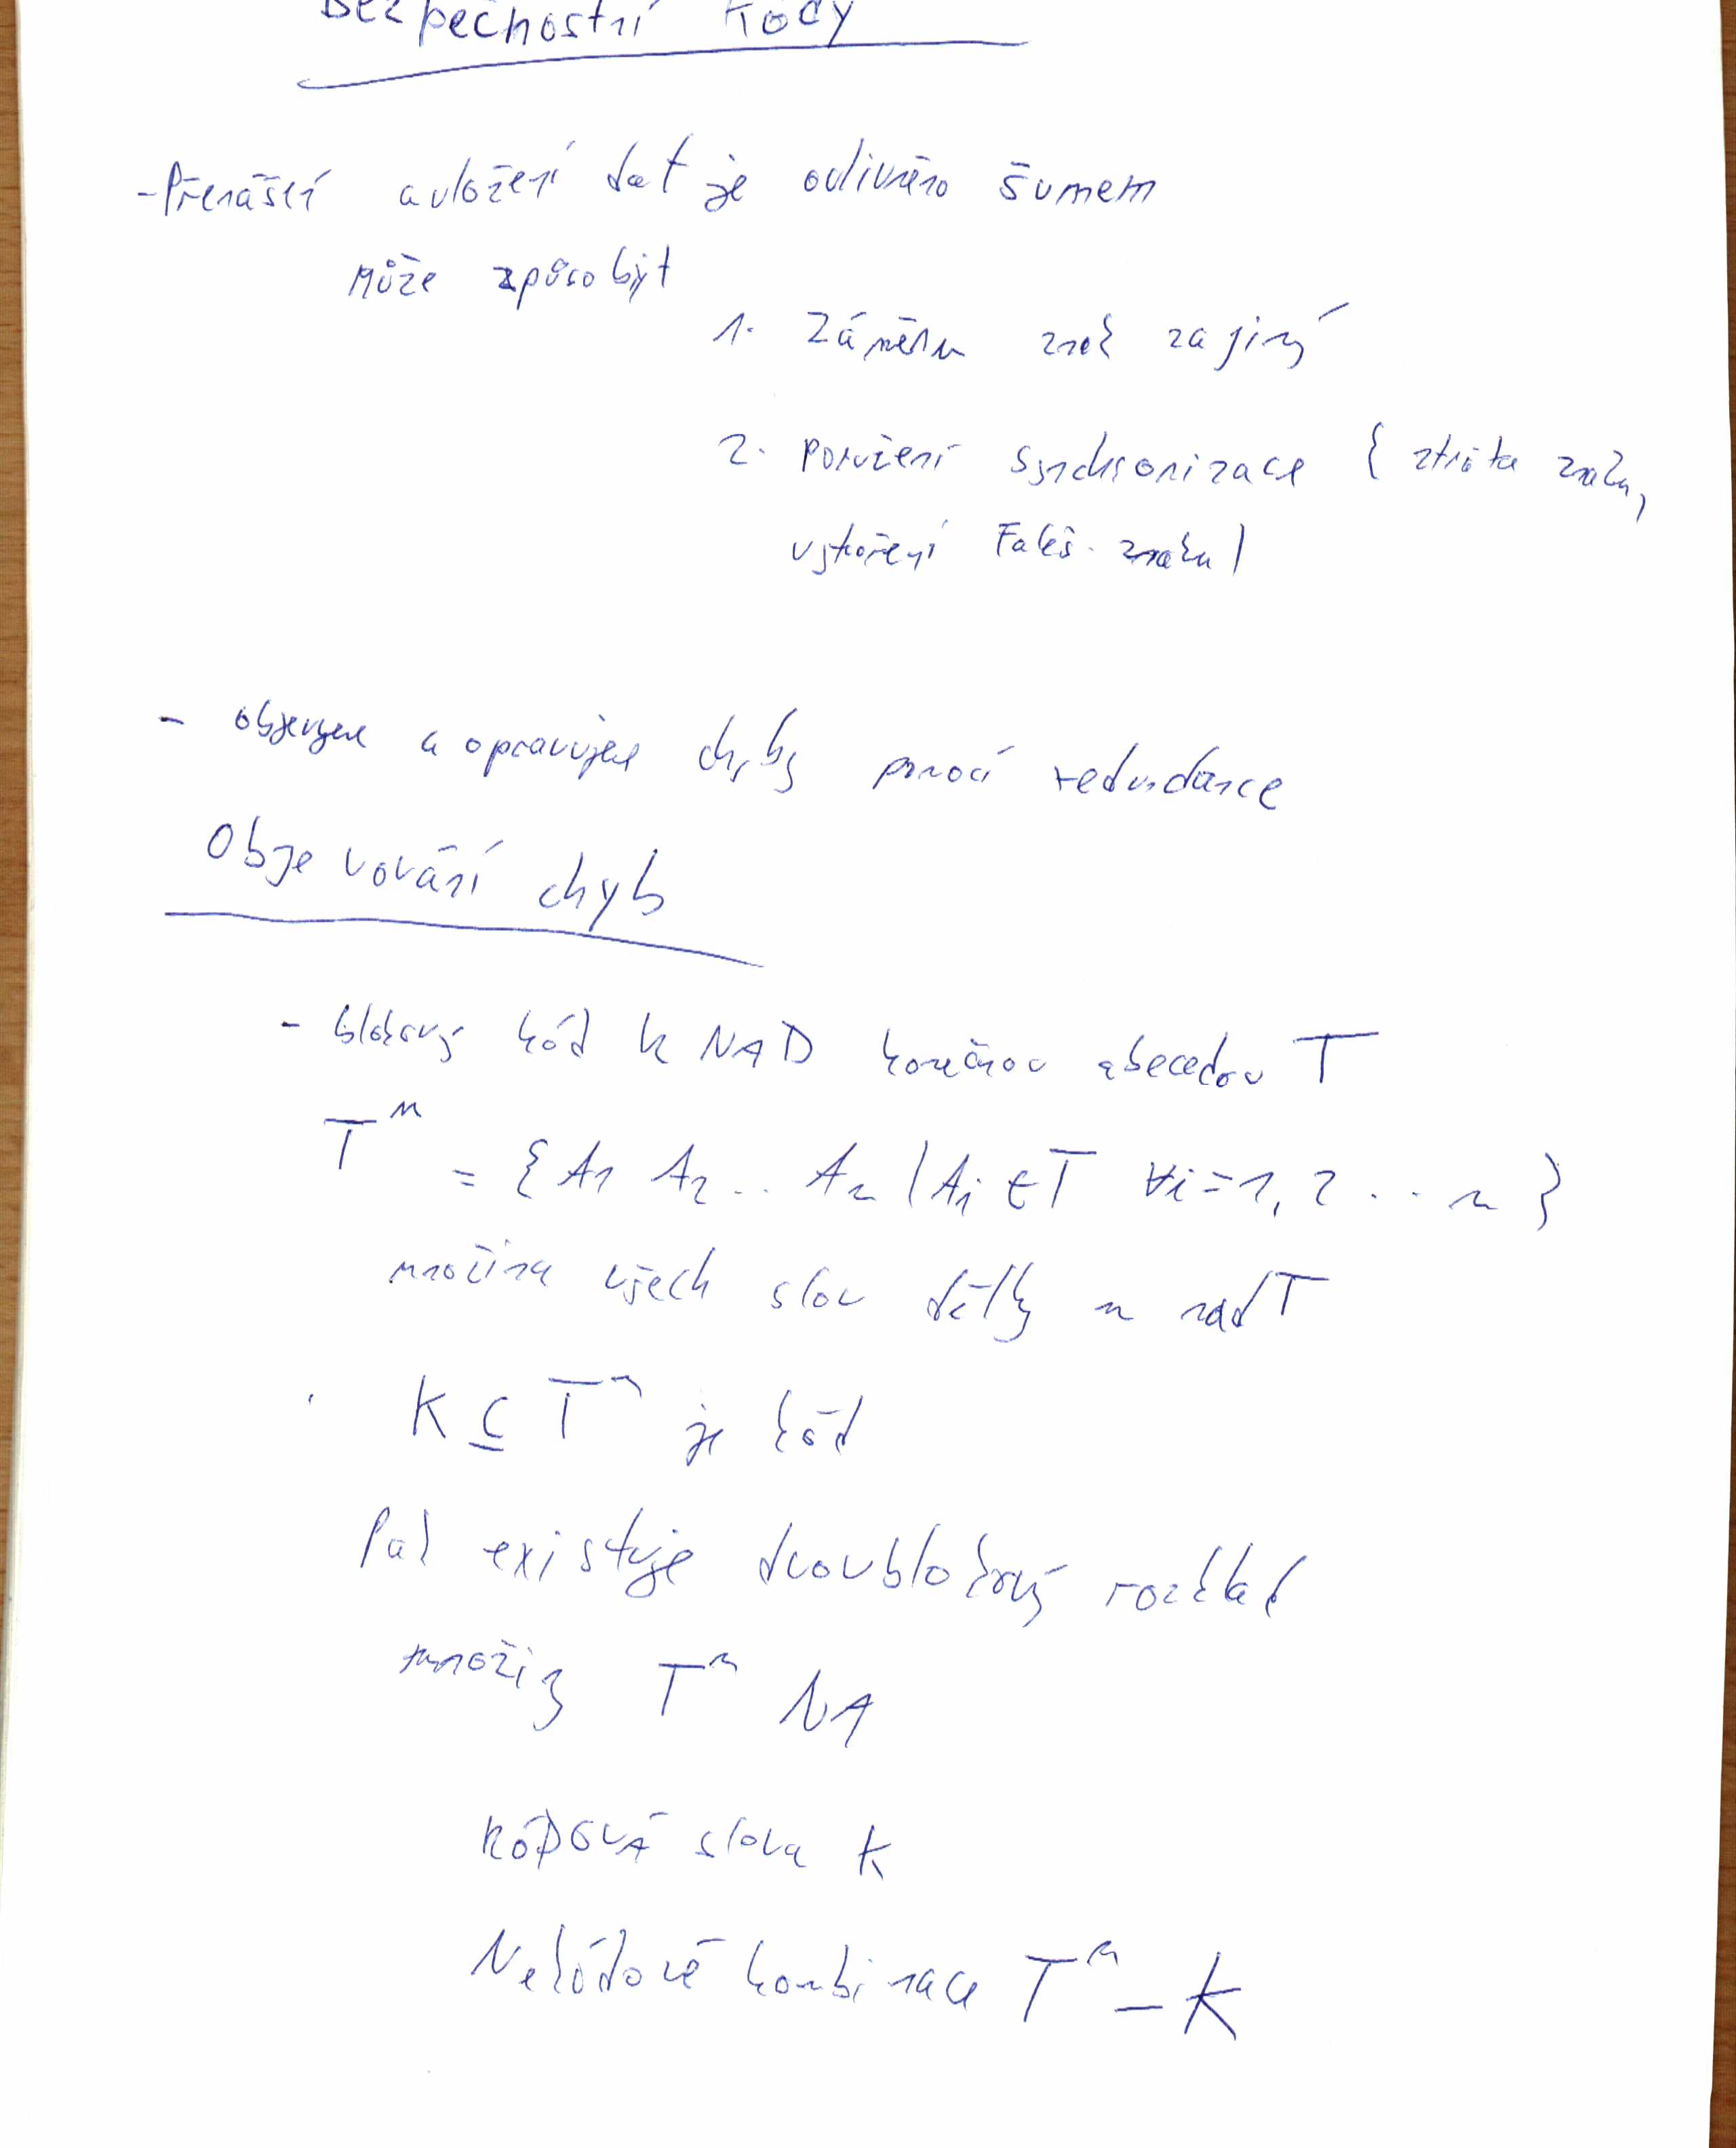 Bezpečnostní kódy
- Přenášení a uložení dat je ovlivněno šumem
může způsobýt
1. Záměnu znak za jiný
2. porušení synchronizace ( ztráta znaku,
vytvoření Faleš. znaku )
- objevujeme a opravujeme chyby pomocí redundance
Objevování chyb
- blokový kód K NAD konečnou abecedou T
Tⁿ = { A1 A2 .. An | Ai ∈ T ∀i = 1, 2 ... n }
množina všech slov délky n nad T
K ⊆ Tⁿ je kód
Pak existuje dvoublokový rozklad
množiny Tⁿ NA
KÓDOVÁ slova K
Nekódové kombinace Tⁿ - K